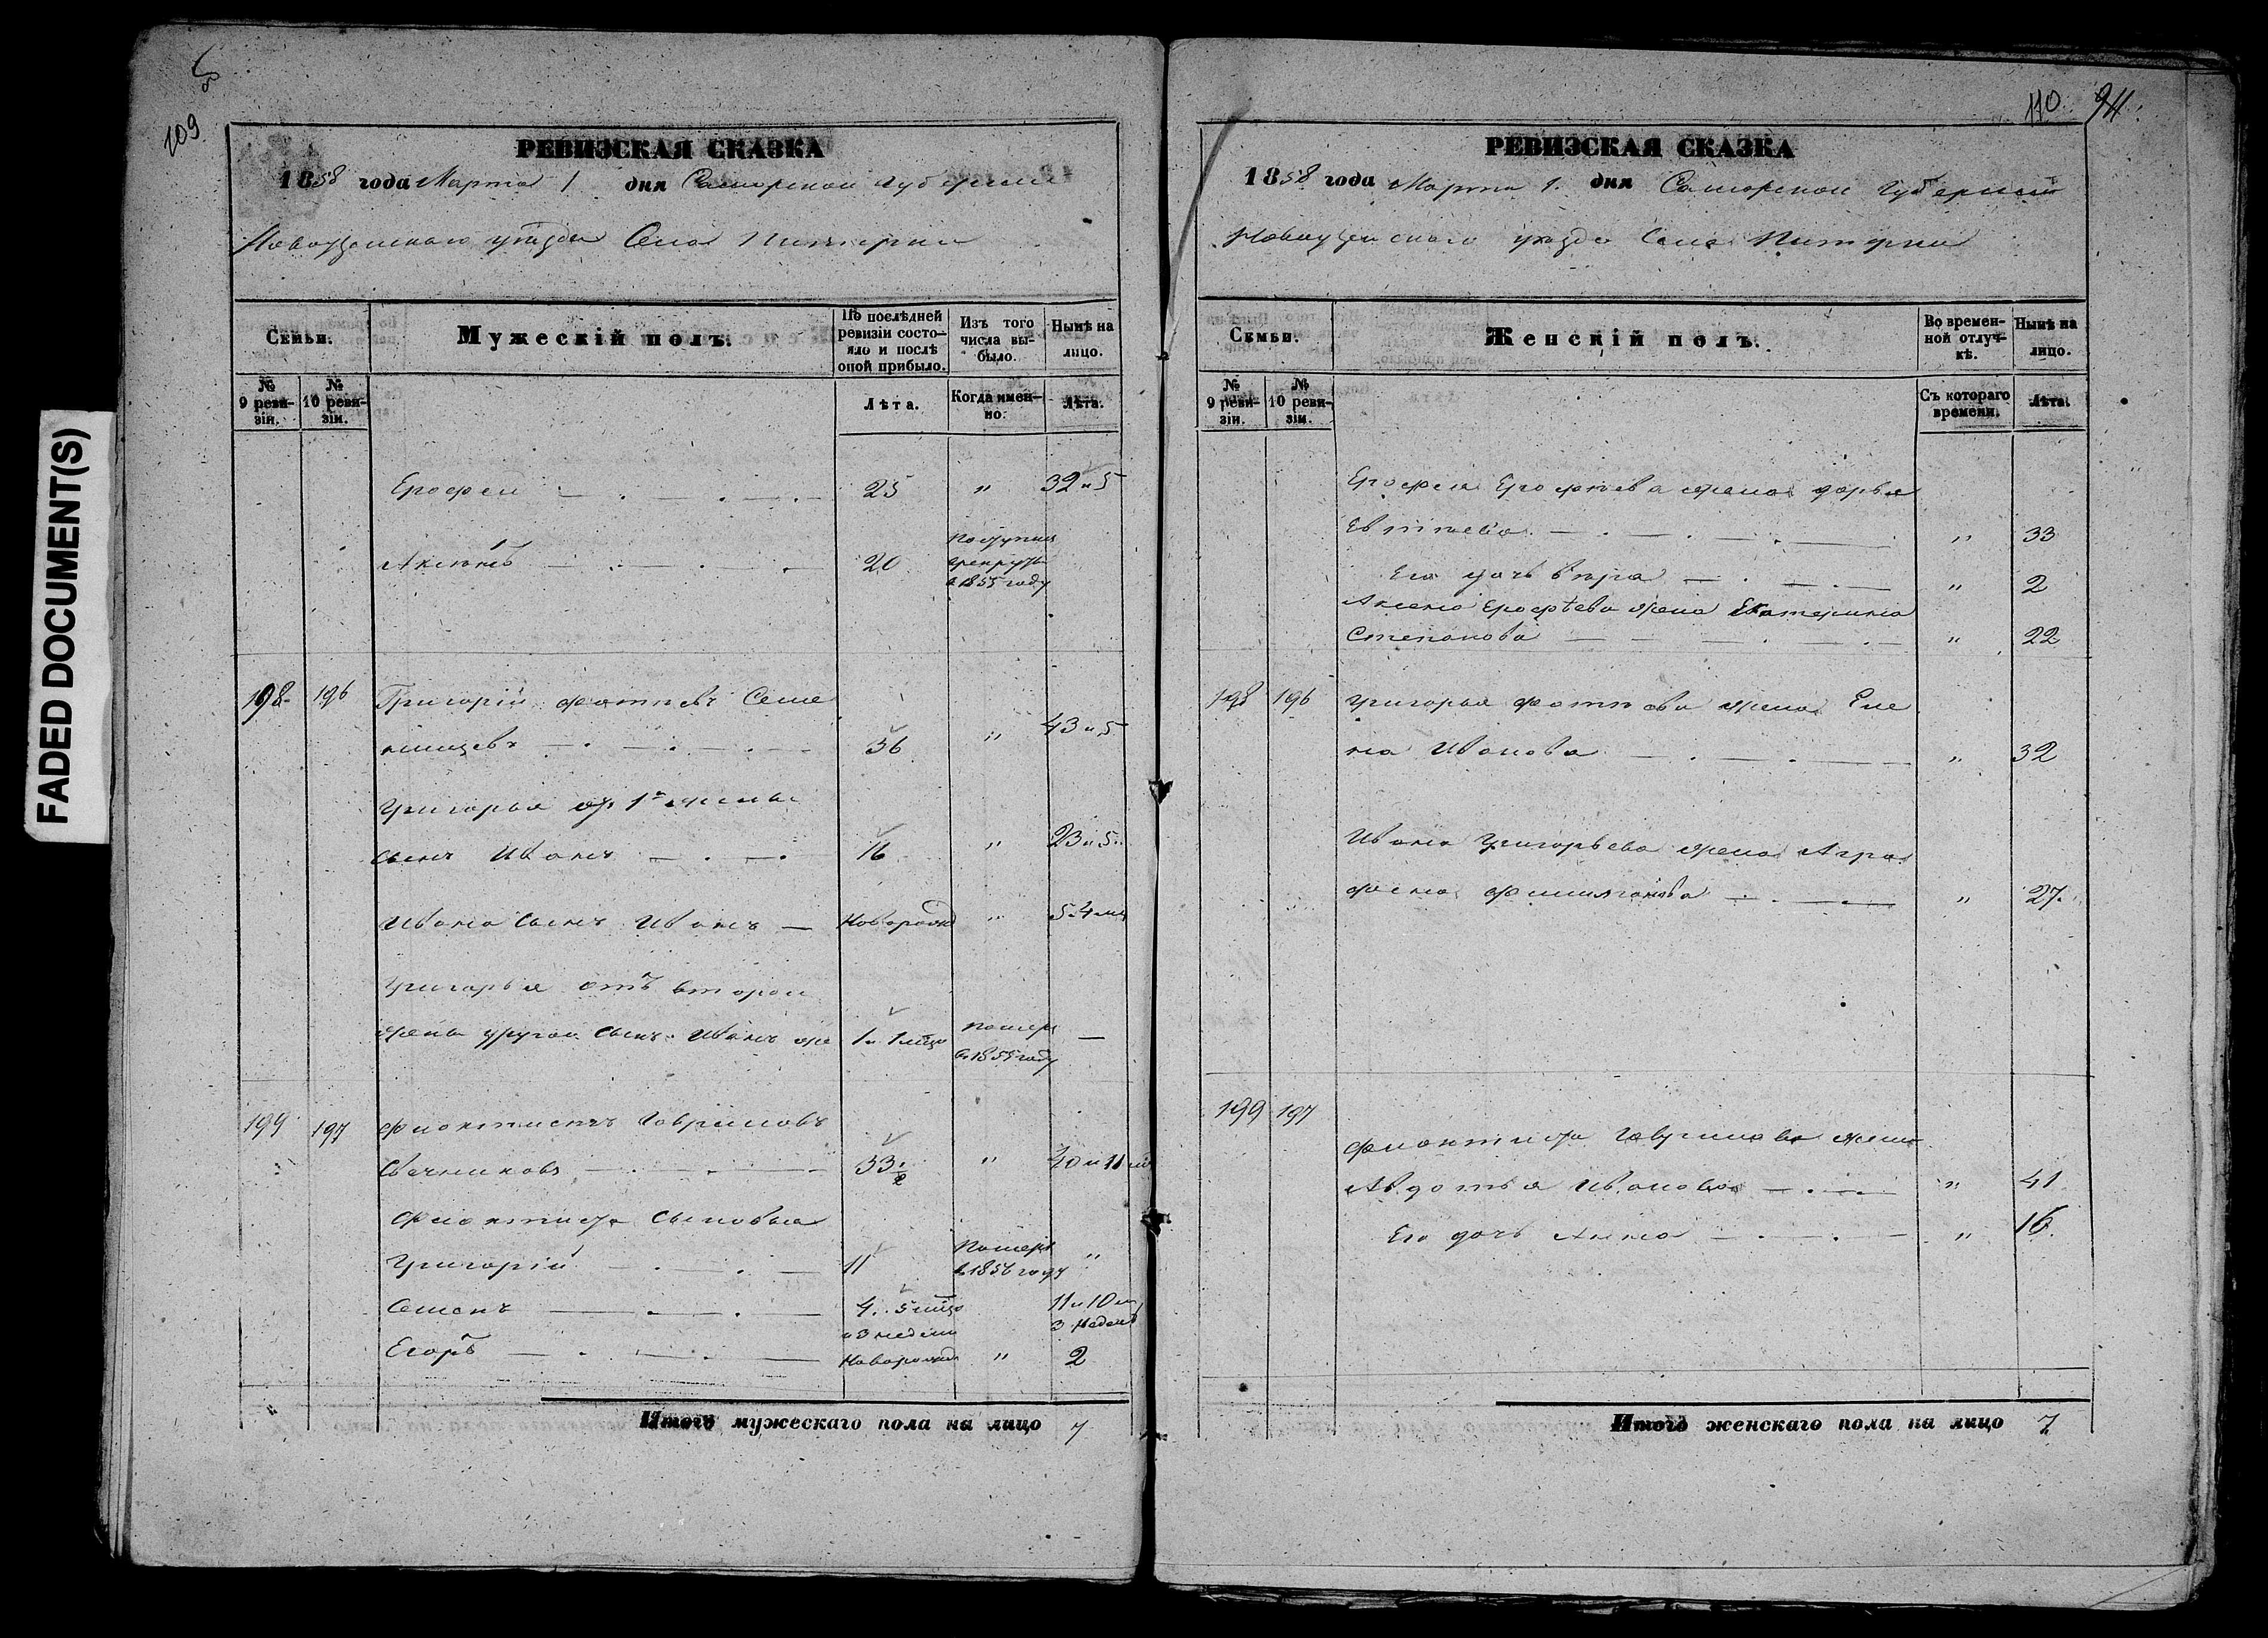 FADED DOCUMENT(S)
109
РЕВИЗСКАЯ СКАЗКА
1858 года Марта 1 дня Самарской губернии
Новоузенскаго уѣзда Села Питерки
Семьи.
Мужескій полъ.
По послѣдней ревизіи состояло и послѣ оной прибыло.
Изъ того числа выбыло.
Нынѣ на лицо.
№ 9 ревизіи.
№ 10 ревизіи.
Лѣта.
Когда именно.
Лѣта.
Ерофеи — . — . — . — 25 " 32 и 5
Аксенъ — . — . — . 20 Поступил в рекруты в 1855 году
198 196 Григорій Фотѣевъ Семе
нищевъ — . — . — . — 36 " 43 и 5
Григорья отъ 1й жены
сынъ Иванъ — . — . 16 " 23 и 5
Ивана сынъ Иванъ — Новорожд " 5 . 4 мц
Григорья отъ второй
жены другой сынъ Иванъ же 1 и 1 мѣца помер в 1855 году —
199 197 Фиоктистъ Гавриловъ
Свечниковъ — . — . — 33 1/2 " 40 и 11 мц
Фиоктиста сыновья
Григорій — . — . — 11 Померъ в 1856 году "
Семенъ — . — . — 4 . 5 мѣцо и 3 недели 11 и 10 м 3 недели
Егоръ — . — . — Новорожд " 2
Итого мужескаго пола на лицо 7
110 94.
РЕВИЗСКАЯ СКАЗКА
1858 года Марта 1. дня Самарской Губернии
Новоузенскаго уѣзда Села Питерки
Семьи.
Женскій полъ.
Во временной отлучкѣ.
Нынѣ на лицо.
№ 9 ревизіи.
№ 10 ревизіи.
Съ котораго времени.
Лѣта.
Ерофея Ерофѣева жена Дарья
— . — . — . — " 33
Его дочь Вѣра — . — . — " 2
Аксена Ерофѣева жена Екатерина
Степанова — — — . — . — " 22
198 196 Григорья Фотѣева жена Еле
на Иванова — . — . — — " 32
Ивана Григорьева жена Агра
фена — . — . — " 27.
199 197
Фиоктиста Гаврилова жена
Авдотья Иванова — . — . " 41
Его дочь Анна — . — . — " 16.
Итого женскаго пола на лицо 7